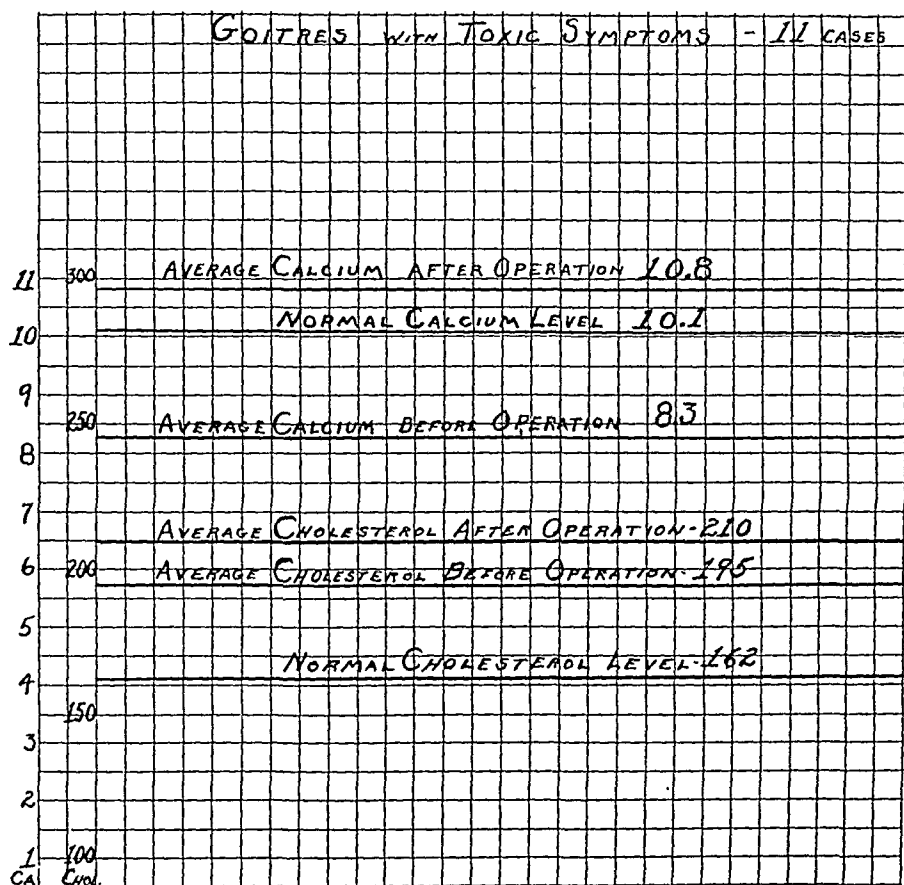 GOITRES WITH TOXIC SYMPTOMS - 11 CASES
11 300 AVERAGE CALCIUM AFTER OPERATION 10.8
NORMAL CALCIUM LEVEL 10.1
10
9
250 AVERAGE CALCIUM BEFORE OPERATION 8.3
8
7
AVERAGE CHOLESTEROL AFTER OPERATION-210
6 200 AVERAGE CHOLESTEROL BEFORE OPERATION-195
5
NORMAL CHOLESTEROL LEVEL-162
4
150
3
2
1 100
CA. CHOL.